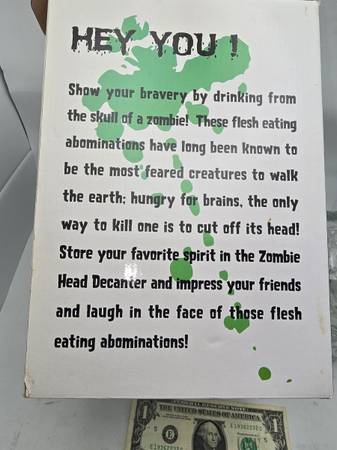 HEY YOU !
Show your bravery by drinking from
the skull of a zombie! These flesh eating
abominations have long been known to
be the most feared creatures to walk
the earth; hungry for brains, the only
way to kill one is to cut off its head!
Store your favorite spirit in the Zombie
Head Decanter and impress your friends
and laugh in the face of those flesh
eating abominations!
FEDERAL RESERVE NOTE
THE UNITED STATES OF AMERICA
1